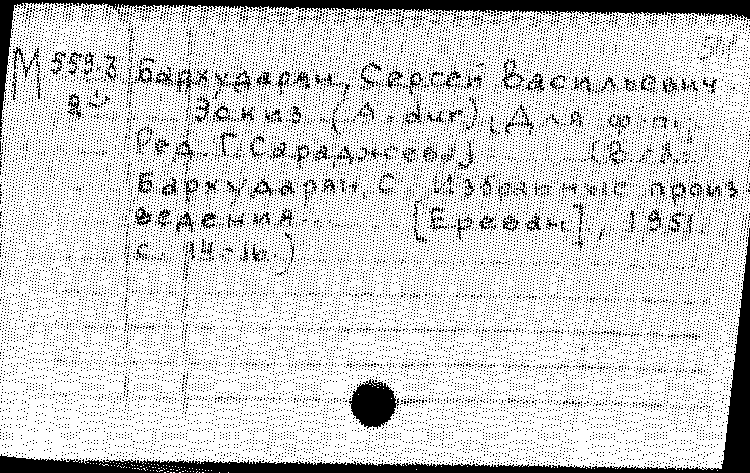 М 5593
Бархударян, Сергей Васильевич.
Эскиз. (A. dur). [Для ф-п.
Ред. Г. Сараджева]
Бархударян, С. Избранные произ
ведения. [Ереван], 1951
с. 14-16.)